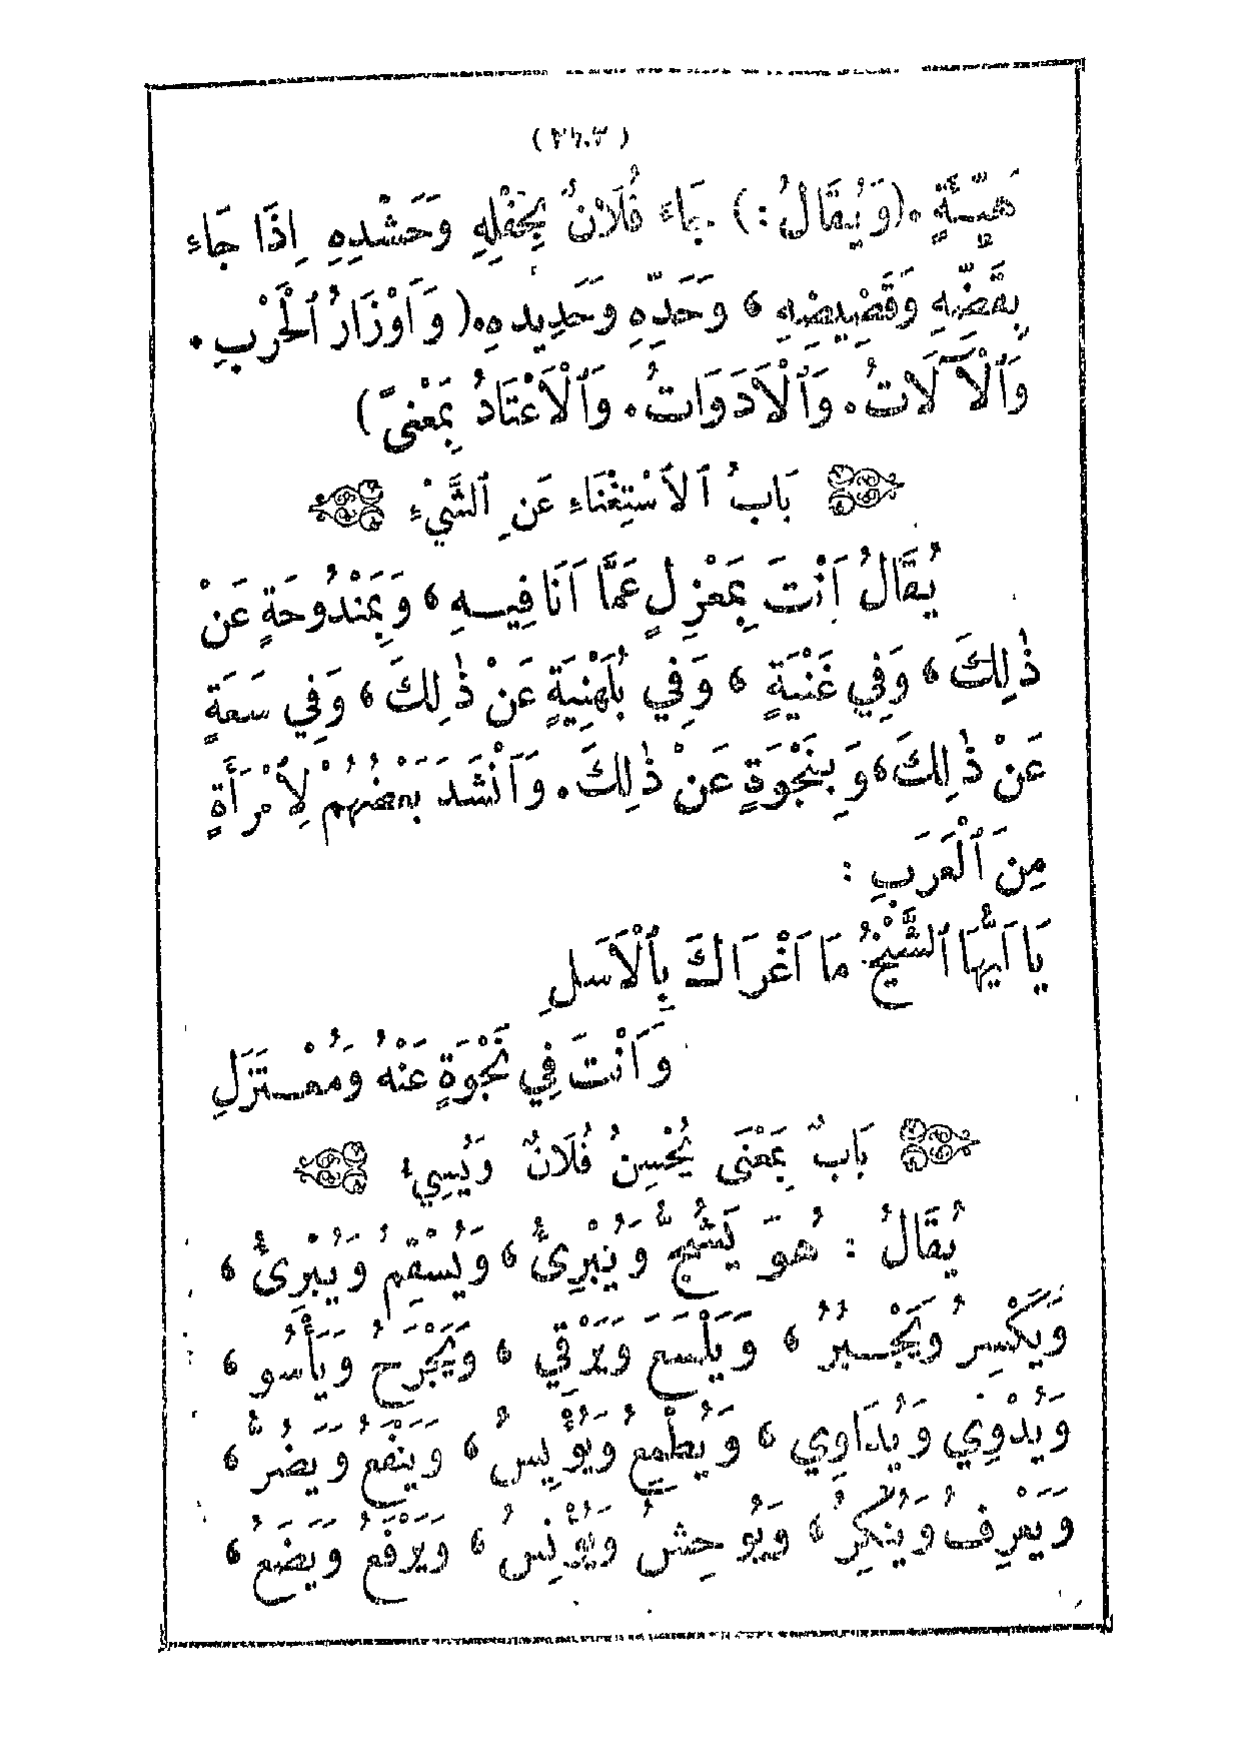 هَيِّئَةٍ. (وَيُقَالُ:) جَاءَ فُلَانٌ بِحَفْلِهِ وَحَشْدِهِ اِذَا جَاءَ
بِقَضِّهِ وَقَضِيضِهِ، وَحَدِّهِ وَحَدِيدِهِ. (وَاَوْزَارُ ٱلْحَرْبِ.
وَٱلْآلَاتُ. وَٱلْاَدَوَاتُ. وَٱلْاَعْتَادُ بِمَعْنًى)
بَابُ ٱلِاسْتِغْنَاءِ عَنِ ٱلشَّيْءِ
يُقَالُ اَنْتَ بِمَعْزِلٍ عَمَّا اَنَا فِيهِ، وَبِمَنْدُوحَةٍ عَنْ
ذٰلِكَ، وَفِي غَنْيَةٍ، وَفِي بُلَهْنِيَةٍ عَنْ ذٰلِكَ، وَفِي سَعَةٍ
عَنْ ذٰلِكَ، وَبِنَجْوَةٍ عَنْ ذٰلِكَ. وَاَنْشَدَ بَعْضُهُمْ لِٱمْرَأَةٍ
مِنَ ٱلْعَرَبِ:
يَا اَيُّهَا ٱلشَّيْخُ مَا اَغْرَاكَ بِٱلْاَسَلِ
وَاَنْتَ فِي نَجْوَةٍ عَنْهُ وَمُعْتَزَلِ
بَابٌ بِمَعْنَى يُحْسِنُ فُلَانٌ وَيُسِيءُ
يُقَالُ: هُوَ يَشُجُّ وَيُبْرِئُ، وَيُسْقِمُ وَيُبْرِئُ،
وَيَكْسِرُ وَيَجْبُرُ، وَيَلْسَعُ وَيَرْقِي، وَيَجْرَحُ وَيَأْسُو،
وَيُدْوِي وَيُدَاوِي، وَيُطْمِعُ وَيُؤْيِسُ، وَيَنْفَعُ وَيَضُرُّ،
وَيَعْرِفُ وَيُنْكِرُ، وَيُوحِشُ وَيُؤْنِسُ، وَيَرْفَعُ وَيَضَعُ،